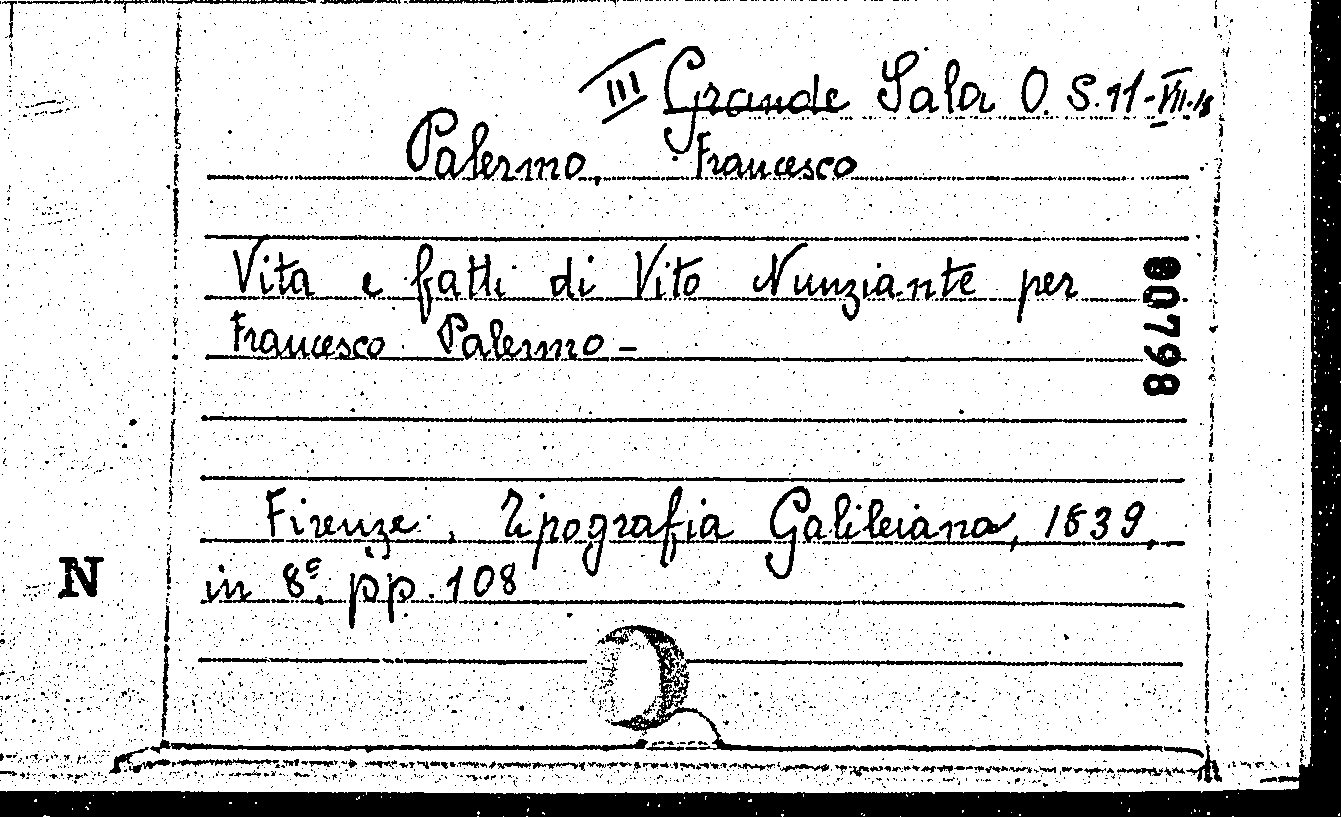 III Grande Sala O. S. 11-VII-18
Palermo, Francesco
Vita e fatti di Vito Nunziante per
Francesco Palermo -
80798
Firenze, Tipografia Galileiana, 1839,
N
in 8º. pp. 108